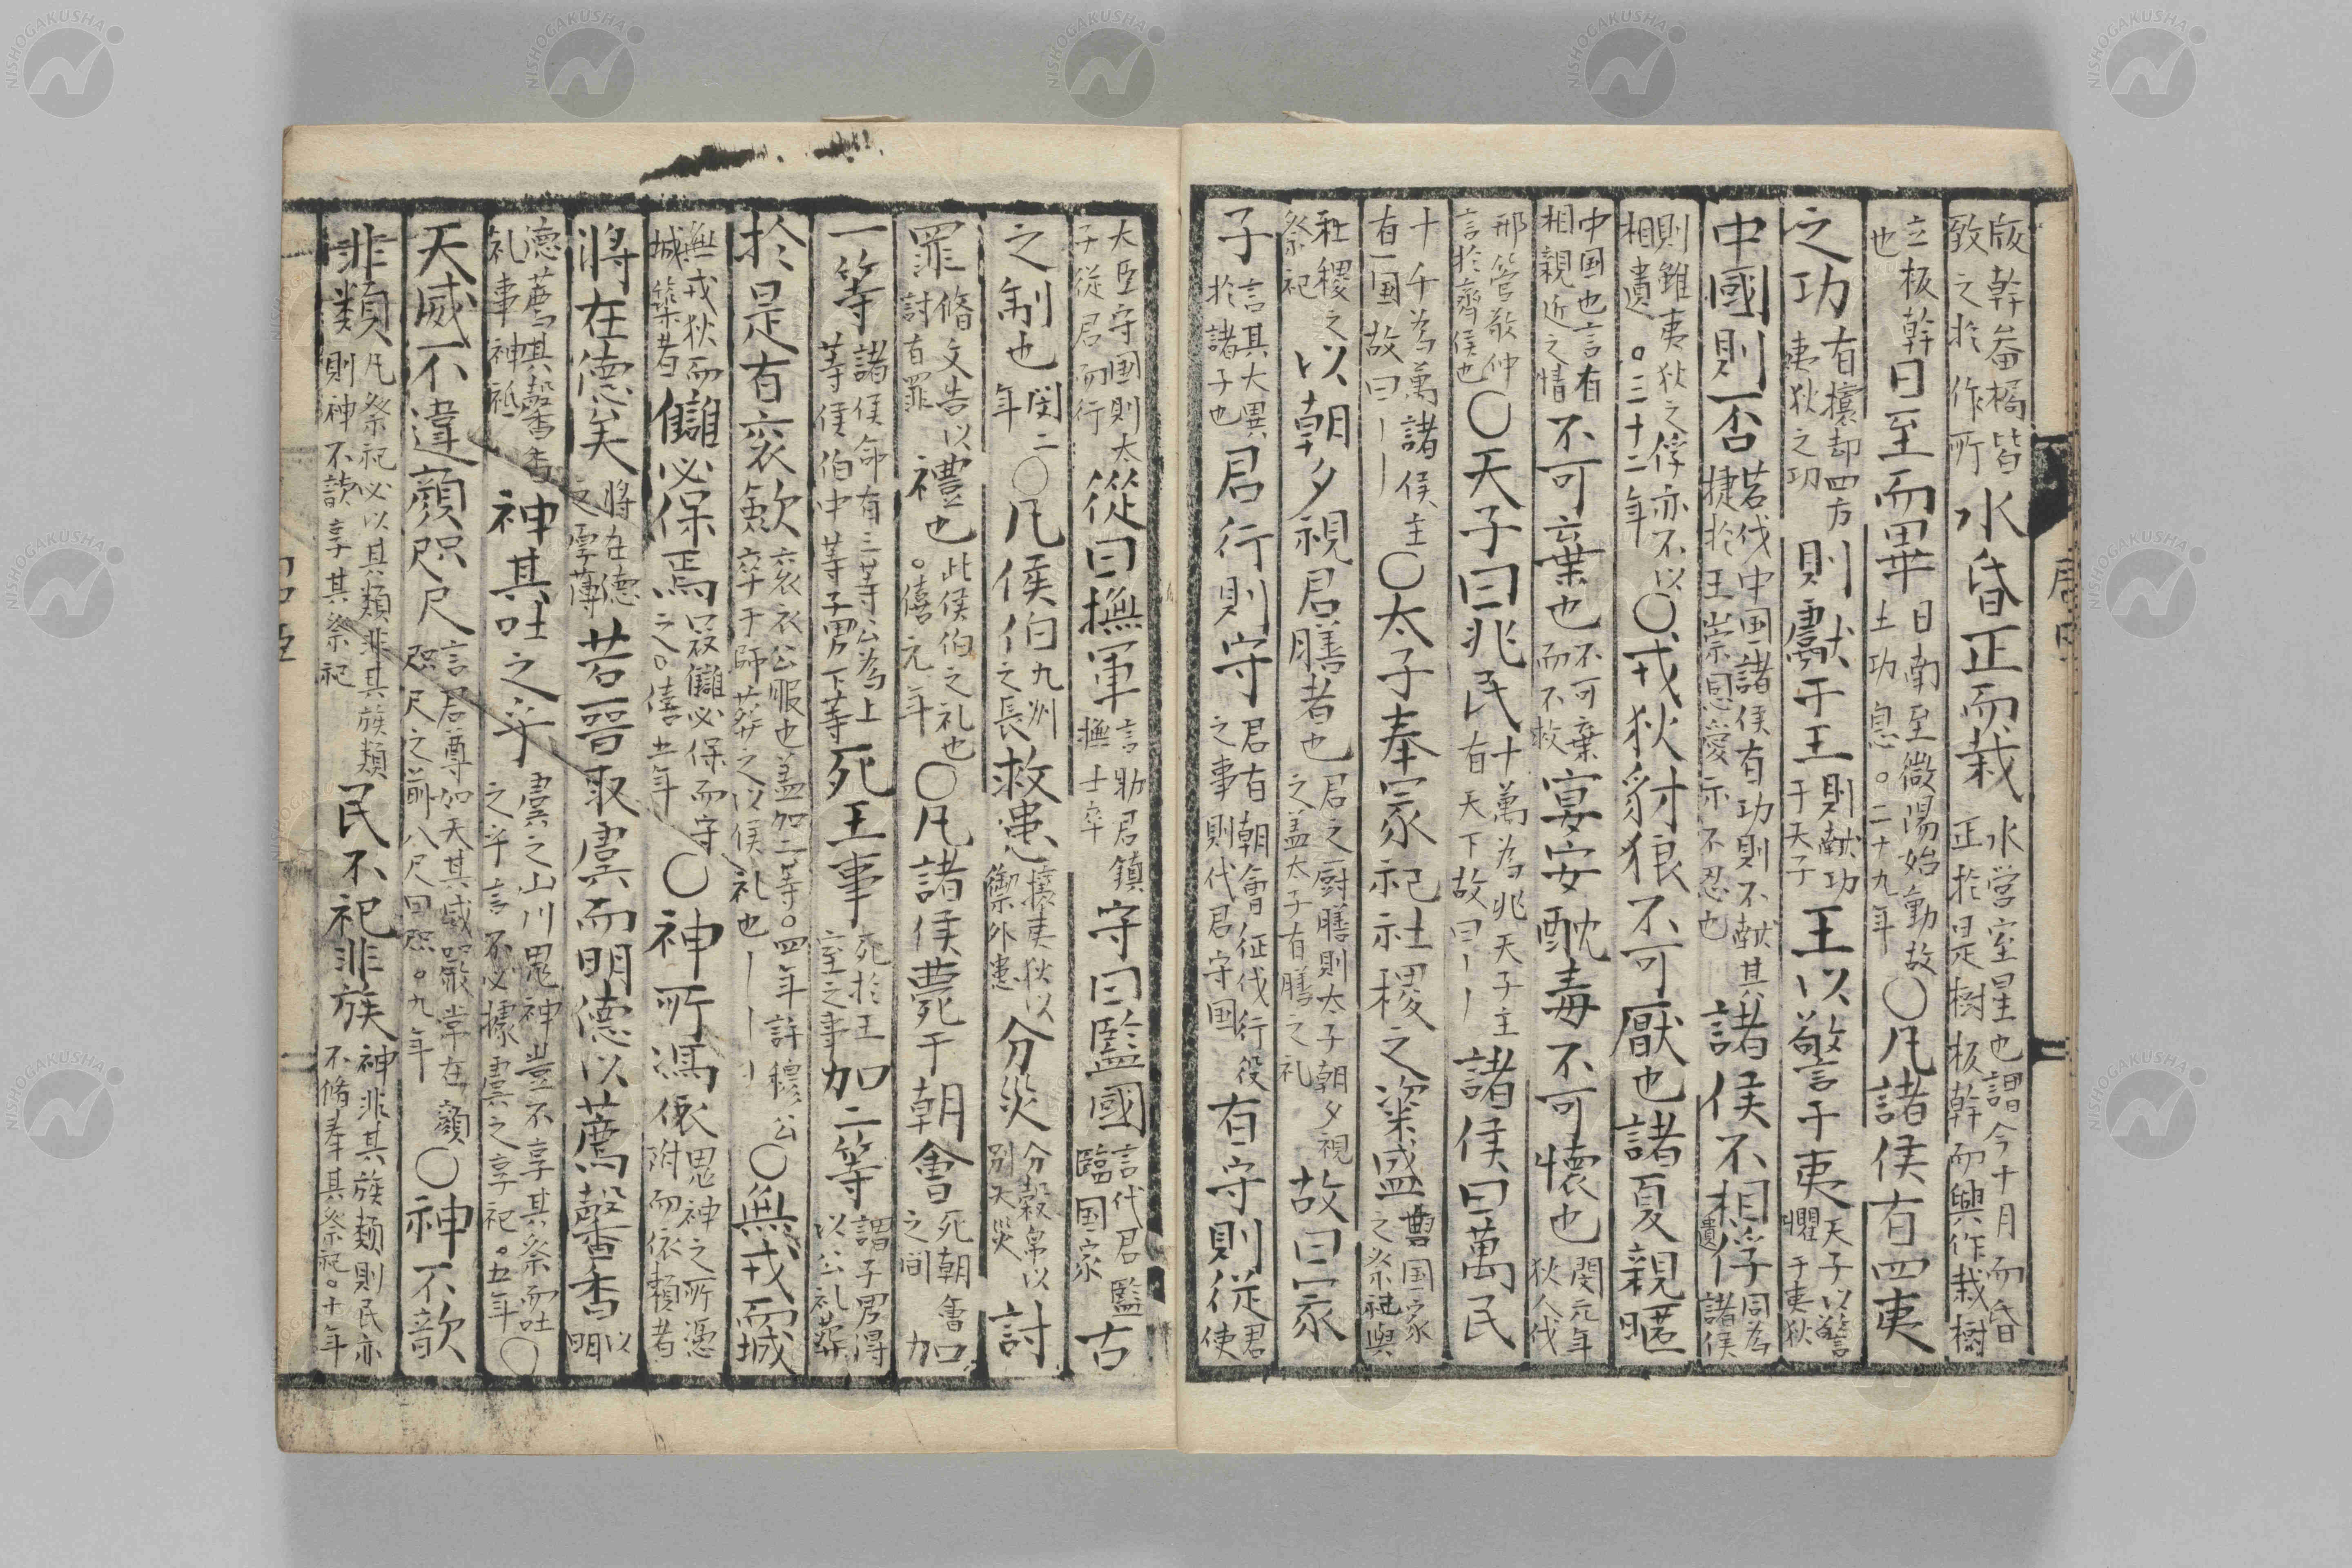 版幹畚梮皆致之於作所水昏正而栽水營室星也謂今十月而昏正於是樹板幹而興作栽樹
立板幹也日至而畢日南至微陽始動故土功息。二十九年○凡諸侯有四夷
之功有攘却四方夷狄之功則獻于王則献功于天子王以警于夷天子以警懼于夷狄
中國則否若伐中国諸侯有功則不献其捷於王崇恩愛示不忍也諸侯不相遺俘同為諸侯
則雖夷狄之俘亦不以相遺。三十二年○戎狄豺狼不可厭也諸夏親暱
中国也言有相親近之情不可棄也不可棄而不救宴安酖毒不可懷也閔元年狄人伐
邢管敬仲言於齊侯也○天子曰兆民十萬為兆天子主有天下故曰——諸侯曰萬民
十千為萬諸侯主有一国故曰——○太子奉家祀社稷之粢盛曹国家之祭祉與
社稷之祭祀以朝夕視君膳者也君之厨膳則太子朝夕視之盖太子有膳之礼故曰家
子言其大異於諸子也君行則守君有朝會征伐行役之事則代君守国有守則従君使
大臣守国則太子従君而行從曰撫軍言助君鎮撫士卒守曰監國言代君監臨国家古
之制也閔二年○凡侯伯九州之長救患攘夷狄以禦外患分災分穀帛以別天災討
罪脩文告以討有罪禮也此侯伯之礼也。僖元年○凡諸侯薨于朝會死朝會之间加
一等諸侯命有三等公為上等侯伯中等子男下等死王事死於王室之事加二等謂子男得以公礼葬
於是有衮斂衮衣公服也盖加二等。四年許穆公卒于師葬之以侯礼也————○無戎而城
無戎狄而城築者讎必保焉寇讎必保而守之。僖五年○神所馮依鬼神之所憑附而依頼者
將在德矣將在德之厚薄若晉取虞而明德以薦馨香以明
德薦其馨香礼事神祇神其吐之乎虞之山川鬼神豈不享其祭而吐之乎言不必據虞之享祀。五年○
天威不違顏咫尺言君尊如天其威嚴常在顔咫尺之前八尺曰咫。九年○神不歆
非類凡祭祀必以其類非其族類則神不歆享其祭祀民不祀非族神非其族類則民亦不脩奉其祭祀。十年